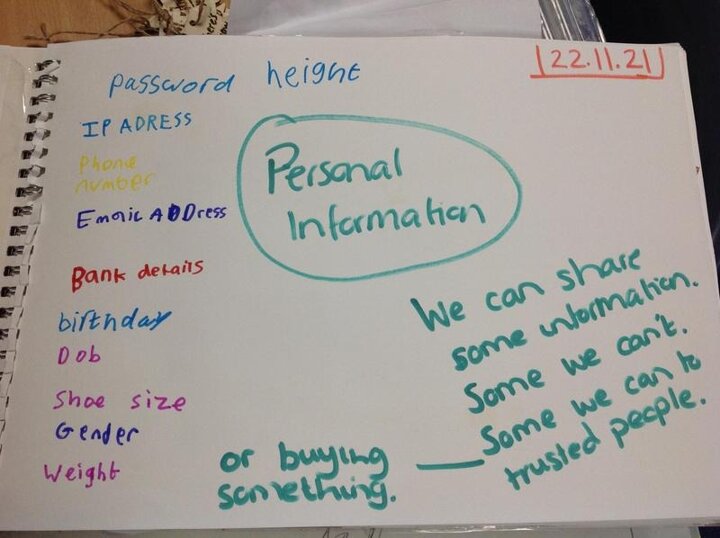 22.11.21
password height
IP ADRESS
Phone
number
Personal
Information
Email ADDress
Bank details
birthday
Dob
Shoe size
Gender
Weight
We can share
some information.
Some we can't.
Some we can to
trusted people.
or buying
something.